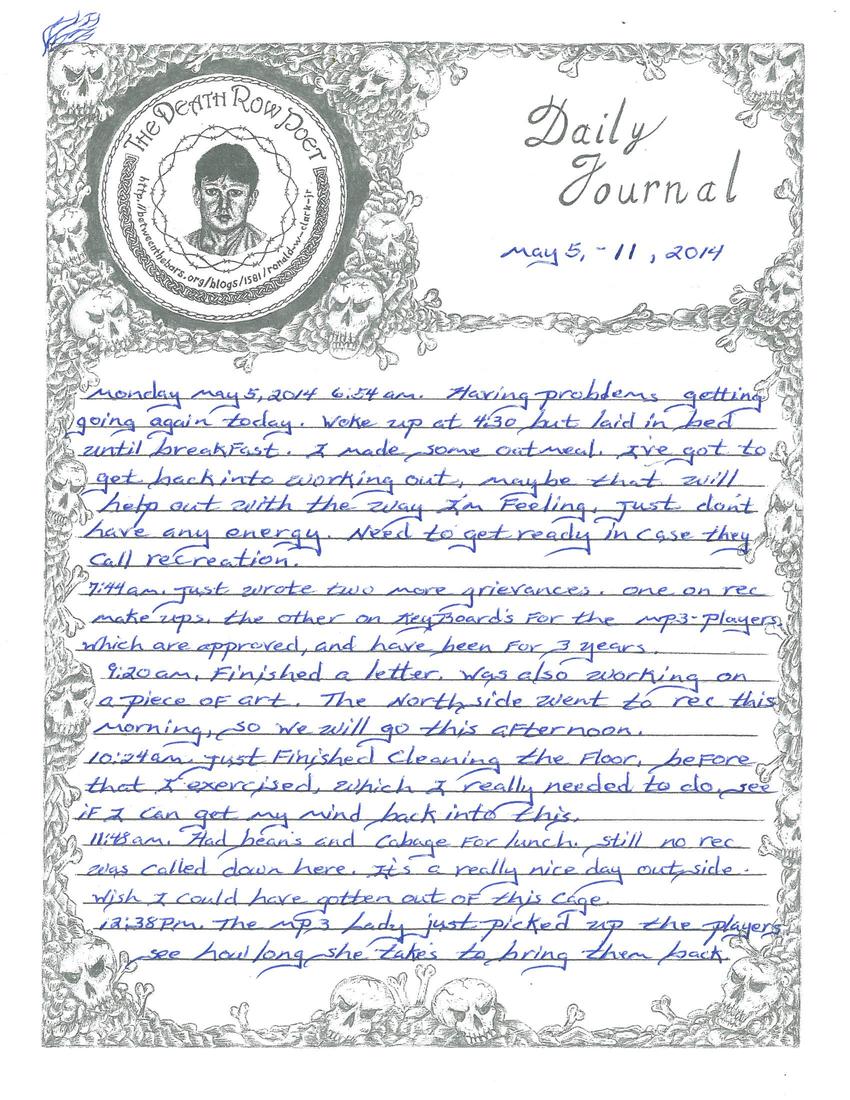 THE DEATH ROW POET
http://betweenthebars.org/blogs/1581/ronald-w-clark-jr
Daily
Journal
May 5, - 11, 2014
Monday May 5, 2014 6:54 am. Having problems getting
going again today. Woke up at 4:30 but laid in bed
until breakfast. I made some oatmeal. I've got to
get back into working out, maybe that will
help out with the way I'm Feeling, just don't
have any energy. Need to get ready in case they
call recreation.
7:44 am. Just wrote two more grievances. one on rec
make ups. the other on KeyBoard's For the mp3-players
which are approved, and have been for 3 years.
9:20 am. Finished a letter. Was also working on
a piece of art. The North side went to rec this
morning, so we will go this afternoon.
10:24 am. Just Finished Cleaning the Floor, before
that I exercised, which I really needed to do, see
if I can get my mind back into this.
11:48 am. Had bean's and Cabage For lunch. still no rec
was called down here. It's a really nice day out side.
wish I could have gotten out of this cage.
12:38 Pm. The mp3 Lady just picked up the players
see how long she takes to bring them back.